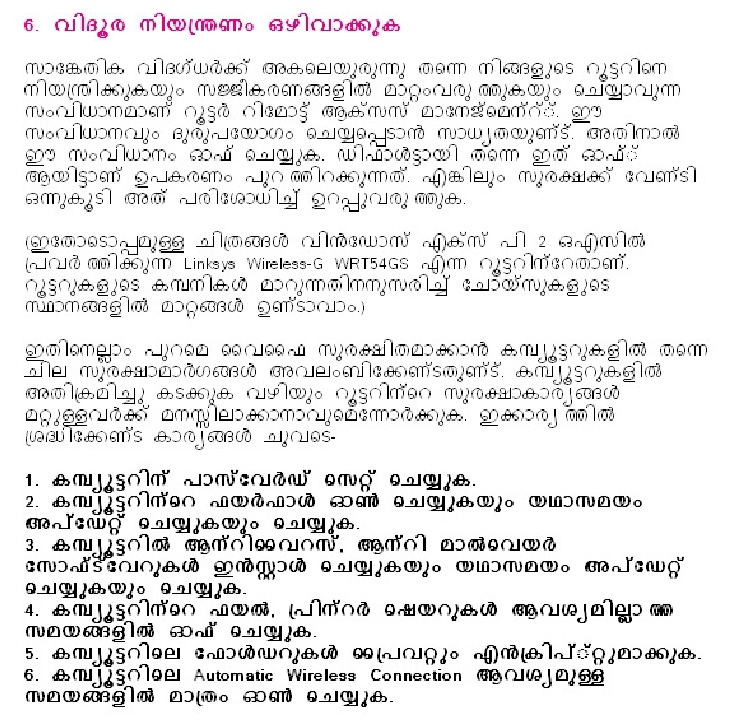 6. വിദൂര നിയന്ത്രണം ഒഴിവാക്കുക
സാങ്കേതിക വിദഗ്ധർക്ക് അകലെയുരുന്നു തന്നെ നിങ്ങളുടെ റൂട്ടറിനെ
നിയന്ത്രിക്കുകയും സജ്ജീകരണങ്ങളിൽ മാറ്റംവരു ത്തുകയും ചെയ്യാവുന്ന
സംവിധാനമാണ് റൂട്ടർ റിമോട്ട് ആക്സസ് മാനേജ്മെന്റ്്. ഈ
സംവിധാനവും ദുരുപയോഗം ചെയ്യപ്പെടാൻ സാധ്യതയുണ്ട്. അതിനാൽ
ഈ സംവിധാനം ഓഫ് ചെയ്യുക. ഡിഫാൾട്ടായി തന്നെ ഇത് ഓഫ്്
ആയിട്ടാണ് ഉപകരണം പുറ ത്തിറക്കുന്നത്. എങ്കിലും സുരക്ഷക്ക് വേണ്ടി
ഒന്നുകൂടി അത് പരിശോധിച്ച് ഉറപ്പുവരു ത്തുക.
(ഇതോടൊപ്പമുള്ള ചിത്രങ്ങൾ വിൻഡോസ് എക്സ് പി 2 ഒഎസിൽ
പ്രവർ ത്തിക്കുന്ന Linksys Wireless-G WRT54GS എന്ന റൂട്ടറിന്റേതാണ്.
റൂട്ടറുകളുടെ കമ്പനികൾ മാറുന്നതിനനുസരിച്ച് ചോയ്സുകളുടെ
സ്ഥാനങ്ങളിൽ മാറ്റങ്ങൾ ഉണ്ടാവാം.)
ഇതിനെല്ലാം പുറമെ വൈഫൈ സുരക്ഷിതമാക്കാൻ കമ്പ്യൂട്ടറുകളിൽ തന്നെ
ചില സുരക്ഷാമാർഗങ്ങൾ അവലംബിക്കേണ്ടതുണ്ട്. കമ്പ്യൂട്ടറുകളിൽ
അതിക്രമിച്ചു കടക്കുക വഴിയും റൂട്ടറിന്റെ സുരക്ഷാകാര്യങ്ങൾ
മറ്റുള്ളവർക്ക് മനസ്സിലാക്കാനാവുമെന്നോർക്കുക. ഇക്കാര്യ ത്തിൽ
ശ്രദ്ധിക്കേണ്ട കാര്യങ്ങൾ ചുവടെ-
1. കമ്പ്യൂട്ടറിന് പാസ്‌വേർഡ് സെറ്റ് ചെയ്യുക.
2. കമ്പ്യൂട്ടറിന്റെ ഫയർഫാൾ ഓൺ ചെയ്യുകയും യഥാസമയം
അപ്ഡേറ്റ് ചെയ്യുകയും ചെയ്യുക.
3. കമ്പ്യൂട്ടറിൽ ആന്റിവൈറസ്, ആന്റി മാൽവെയർ
സോഫ്ട്‌വേറുകൾ ഇൻസ്റ്റാൾ ചെയ്യുകയും യഥാസമയം അപ്ഡേറ്റ്
ചെയ്യുകയും ചെയ്യുക.
4. കമ്പ്യൂട്ടറിന്റെ ഫയൽ, പ്രിന്റർ ഷെയറുകൾ ആവശ്യമില്ലാ ത്ത
സമയങ്ങളിൽ ഓഫ് ചെയ്യുക.
5. കമ്പ്യൂട്ടറിലെ ഫോൾഡറുകൾ പ്രൈവറ്റും എൻക്രിപ്്റ്റുമാക്കുക.
6. കമ്പ്യൂട്ടറിലെ Automatic Wireless Connection ആവശ്യമുള്ള
സമയങ്ങളിൽ മാത്രം ഓൺ ചെയ്യുക.